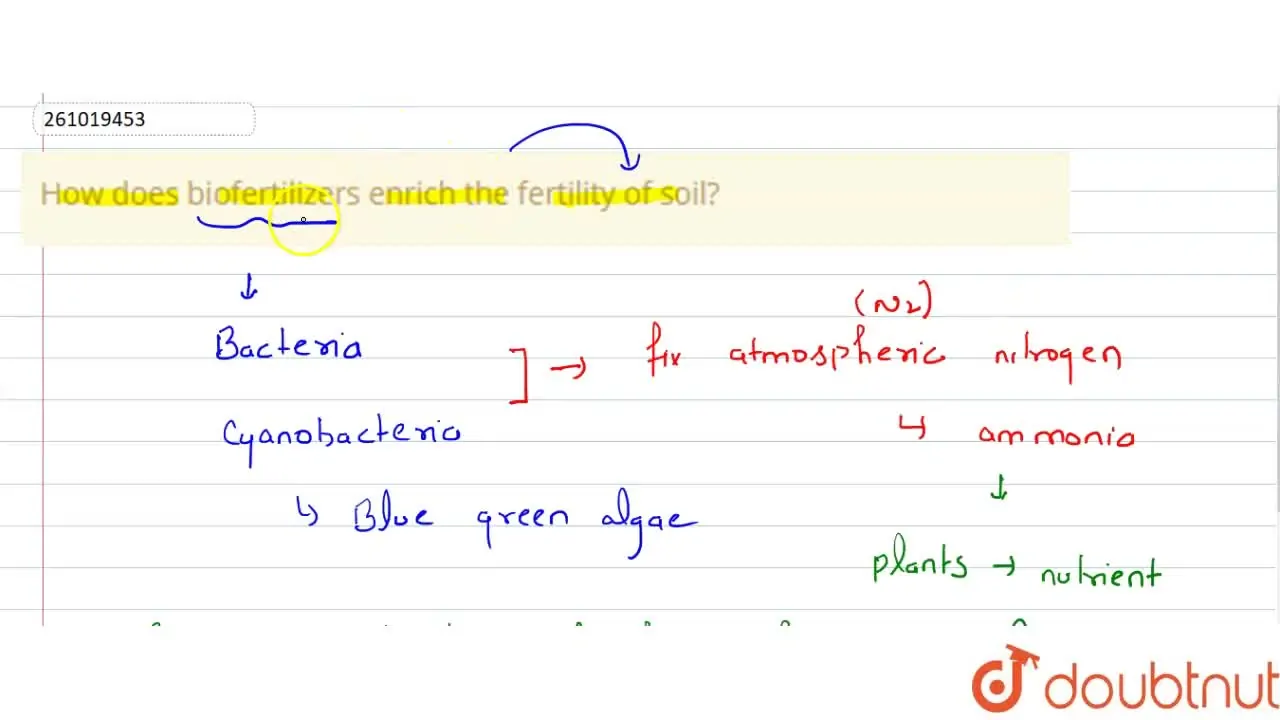 261019453
How does biofertilizers enrich the fertility of soil?
(N2)
Bacteria ] → fix atmospheric nitrogen
Cyanobacteria ↳ ammonia
↳ Blue green algae
plants → nutrient
doubtnut